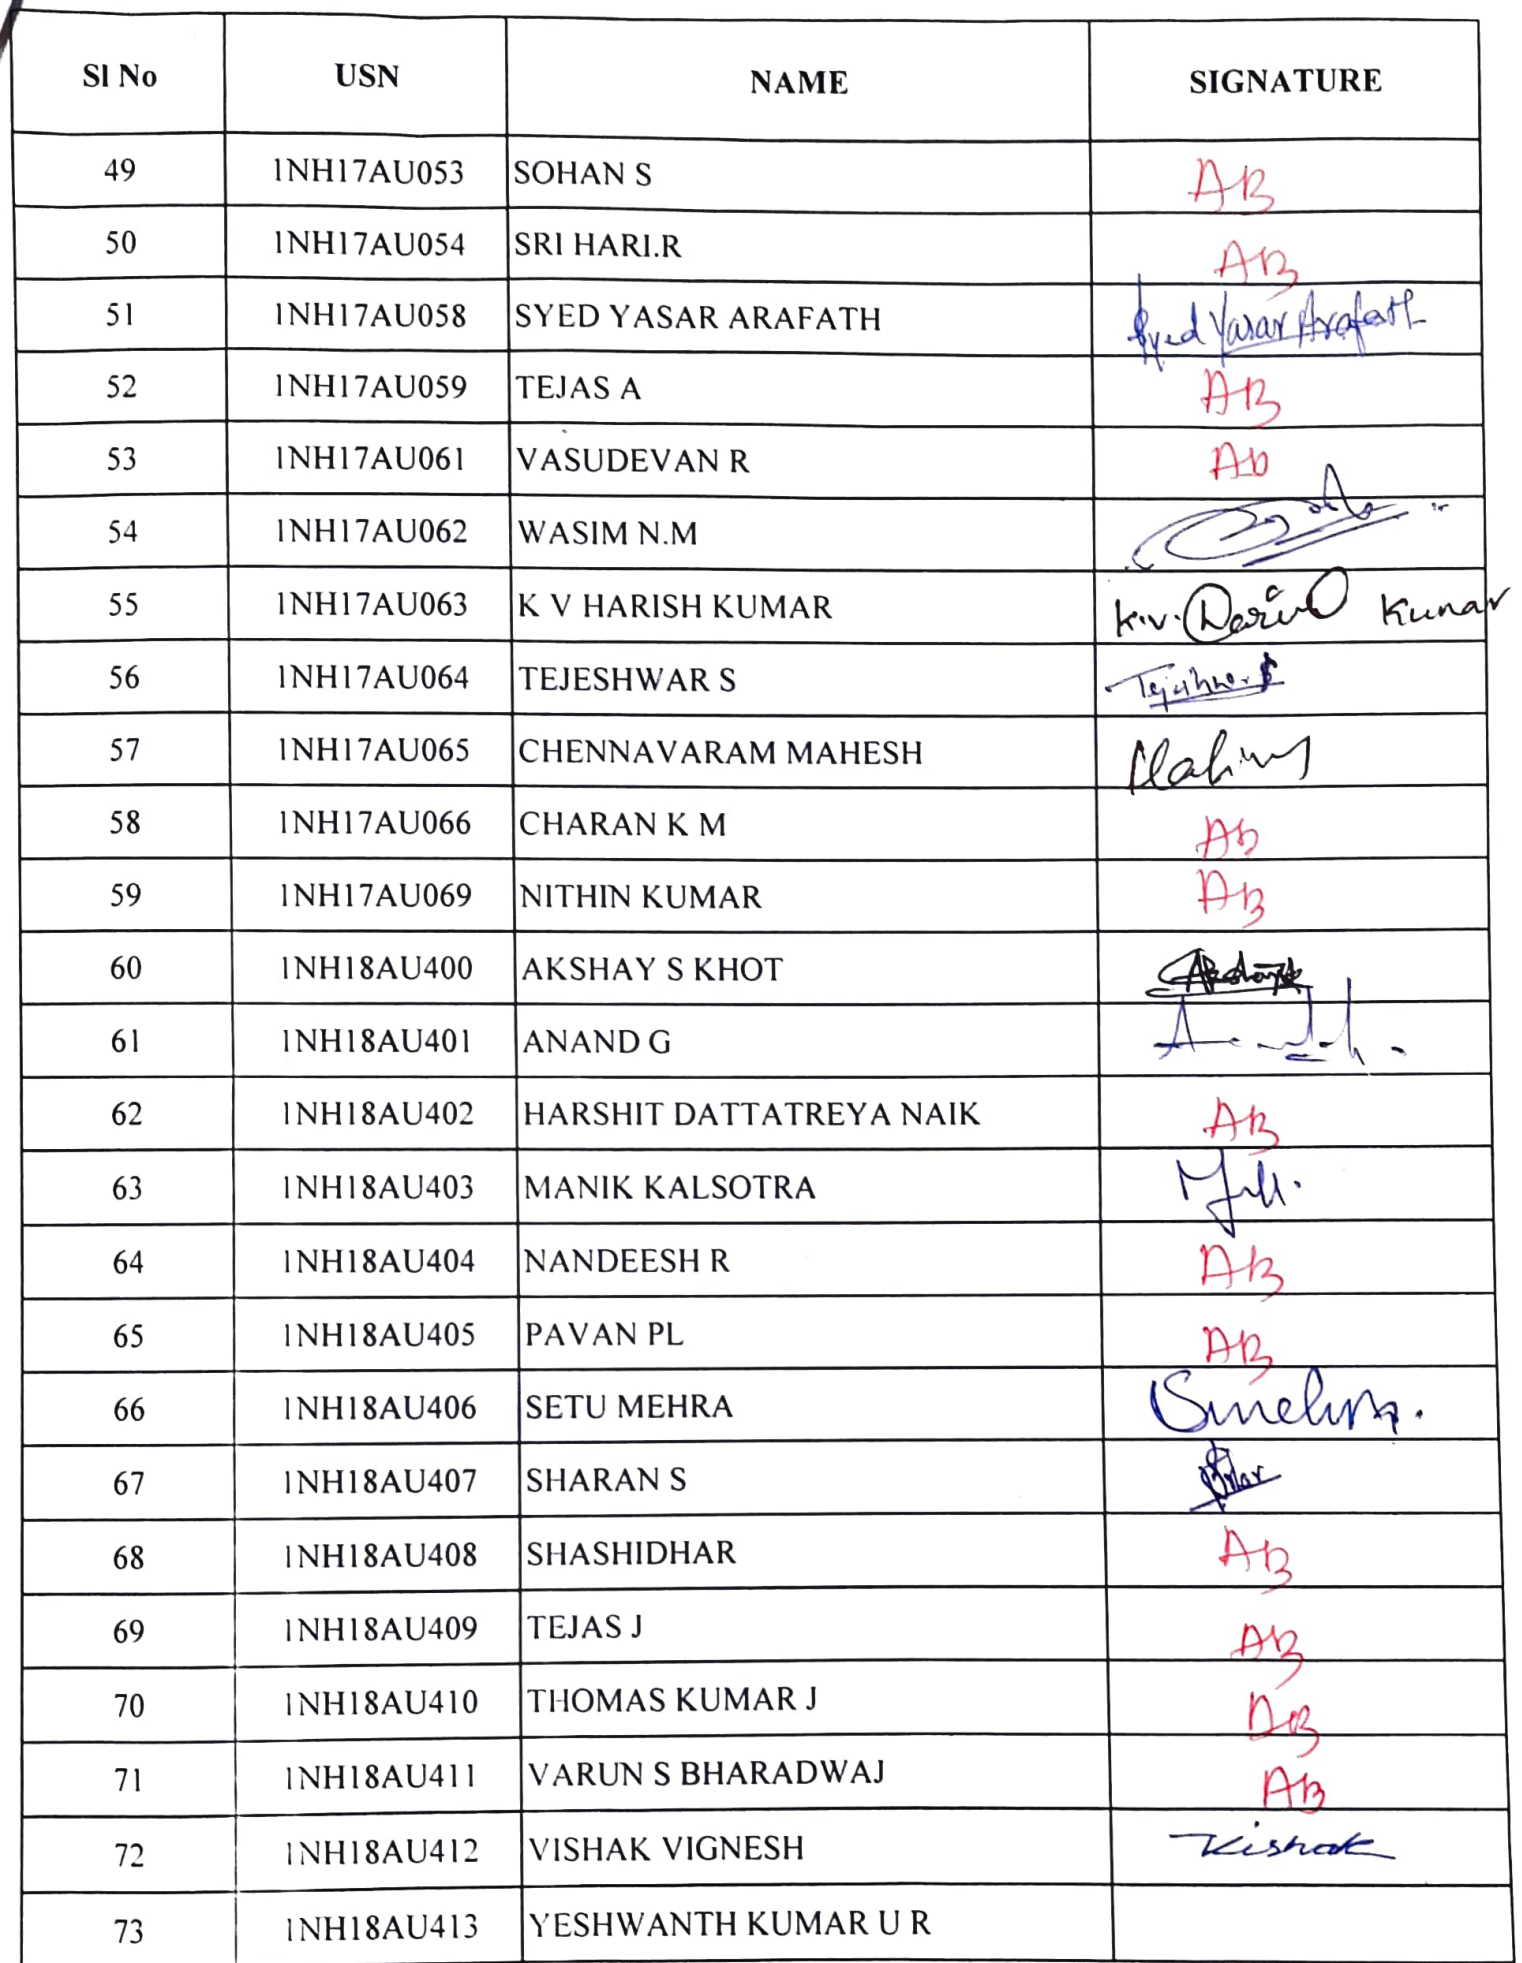 Sl No USN NAME SIGNATURE
49 1NH17AU053 SOHAN S AB
50 1NH17AU054 SRI HARI.R AB
51 1NH17AU058 SYED YASAR ARAFATH Syed Yasar Arafath
52 1NH17AU059 TEJAS A AB
53 1NH17AU061 VASUDEVAN R Ab
54 1NH17AU062 WASIM N.M
55 1NH17AU063 K V HARISH KUMAR K.V. Kumar
56 1NH17AU064 TEJESHWAR S
57 1NH17AU065 CHENNAVARAM MAHESH
58 1NH17AU066 CHARAN K M Ab
59 1NH17AU069 NITHIN KUMAR AB
60 1NH18AU400 AKSHAY S KHOT
61 1NH18AU401 ANAND G
62 1NH18AU402 HARSHIT DATTATREYA NAIK AB
63 1NH18AU403 MANIK KALSOTRA
64 1NH18AU404 NANDEESH R AB
65 1NH18AU405 PAVAN PL AB
66 1NH18AU406 SETU MEHRA Smehra.
67 1NH18AU407 SHARAN S
68 1NH18AU408 SHASHIDHAR AB
69 1NH18AU409 TEJAS J AB
70 1NH18AU410 THOMAS KUMAR J AB
71 1NH18AU411 VARUN S BHARADWAJ AB
72 1NH18AU412 VISHAK VIGNESH Vishak
73 1NH18AU413 YESHWANTH KUMAR U R